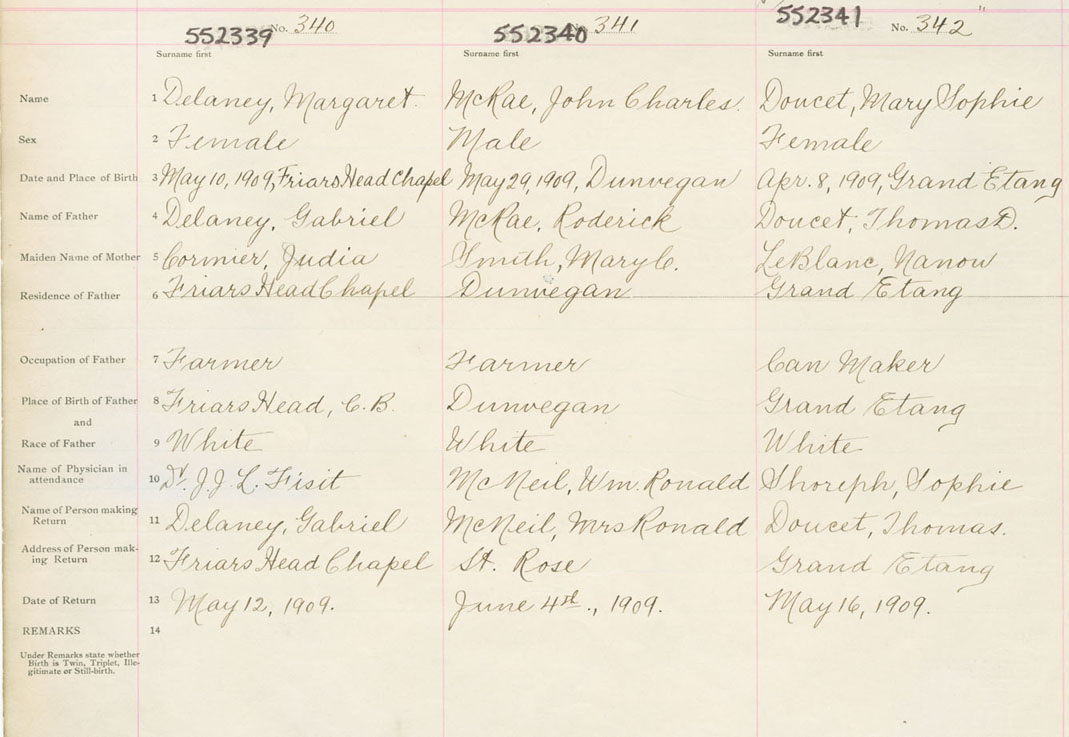 552339 No. 340 552340 No. 341 552341 No. 342
Surname first Surname first Surname first
Name 1 Delaney, Margaret. McRae, John Charles. Doucet, Mary Sophie
Sex 2 Female Male Female
Date and Place of Birth 3 May 10, 1909, Friars Head Chapel May 29, 1909, Dunvegan Apr. 8, 1909, Grand Etang
Name of Father 4 Delaney, Gabriel McRae, Roderick Doucet, Thomas D.
Maiden Name of Mother 5 Cormier, Judia Smith, Mary C. LeBlanc, Nanou
Residence of Father 6 Friars Head Chapel Dunvegan Grand Etang
Occupation of Father 7 Farmer Farmer Can Maker
Place of Birth of Father 8 Friars Head, C.B. Dunvegan Grand Etang
and
Race of Father 9 White White White
Name of Physician in
attendance 10 Dr. J. J. L. Fisit McNeil, Wm. Ronald Sophie
Name of Person making
Return 11 Delaney, Gabriel McNeil, Mrs Ronald Doucet, Thomas.
Address of Person mak-
ing Return 12 Friars Head Chapel St. Rose Grand Etang
Date of Return 13 May 12, 1909. June 4th., 1909. May 16, 1909.
REMARKS 14
Under Remarks state whether
Birth is Twin, Triplet, Ille-
gitimate or Still-birth.